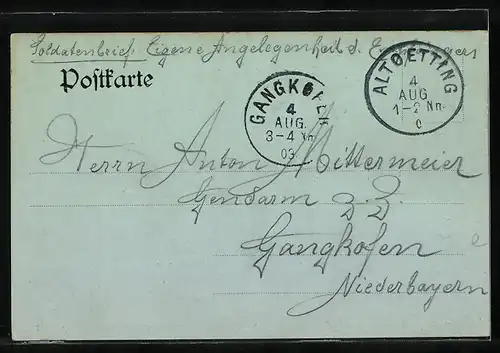 Soldatenbrief. Eigene Angelegenheit d. Empfängers
Postkarte
GANGKOFEN
4
AUG.
3-4 Nn.
03
ALTOETTING
4
AUG
1-2 Nn.
0
Herrn Anton Mittermeier
Gendarm z. Z.
Gangkofen
Niederbayern